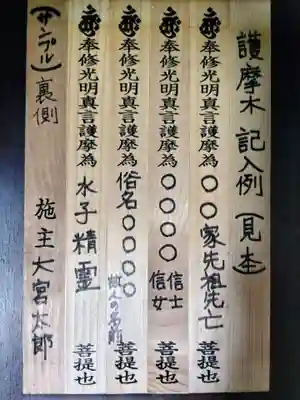 護摩木 記入例 (見本)
奉修光明真言護摩為 〇〇家先祖先亡 菩提也
奉修光明真言護摩為 〇〇〇〇 信士 信女 菩提也
奉修光明真言護摩為 俗名〇〇〇〇 故人の名前 菩提也
奉修光明真言護摩為 水子精霊 菩提也
(サンプル) 裏側 施主 大宮太郎